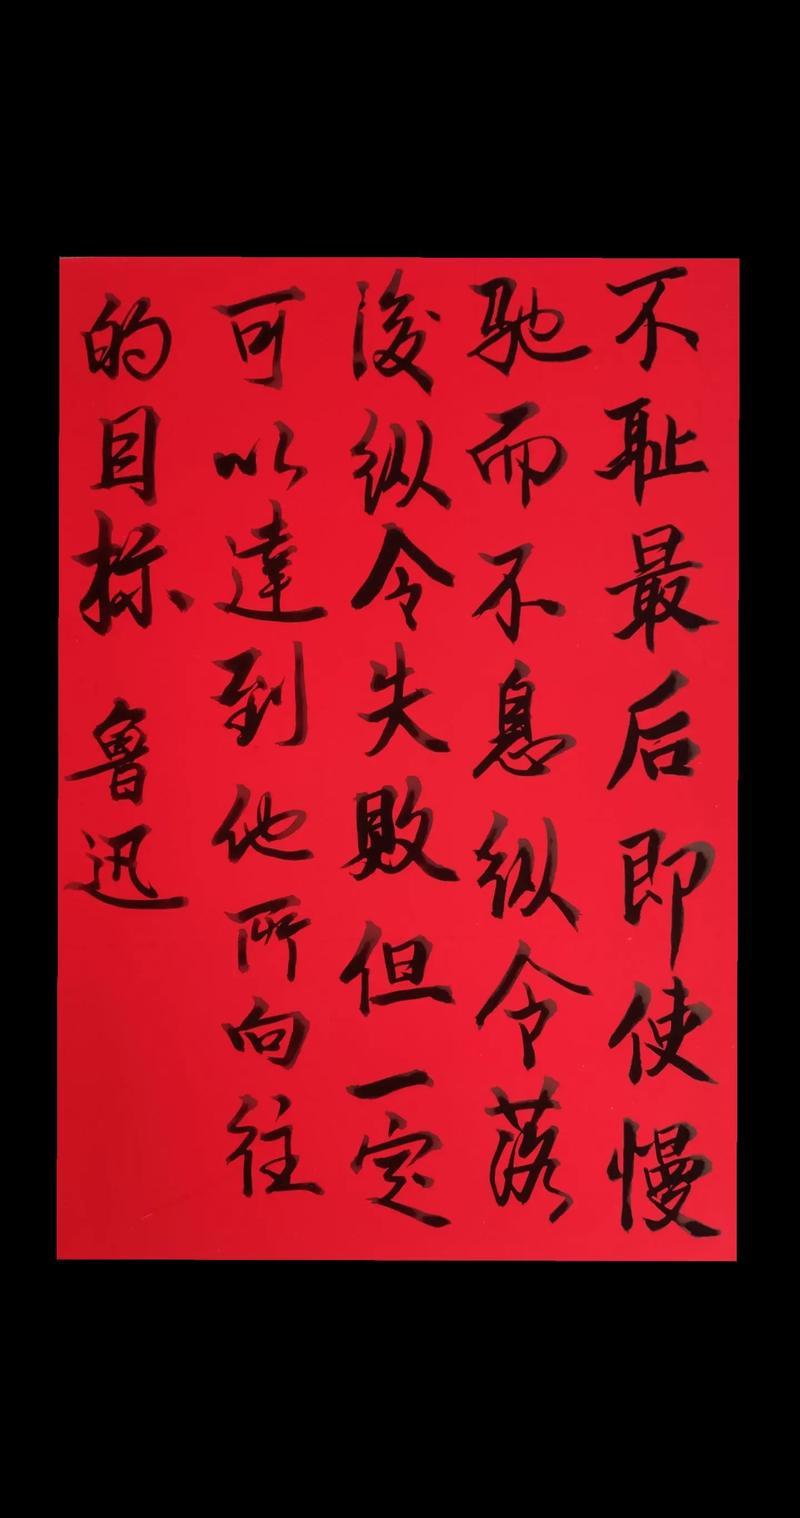 不耻最后即使慢
驰而不息纵令落
後纵令失败但一定
可以達到他所向往
的目标 鲁迅